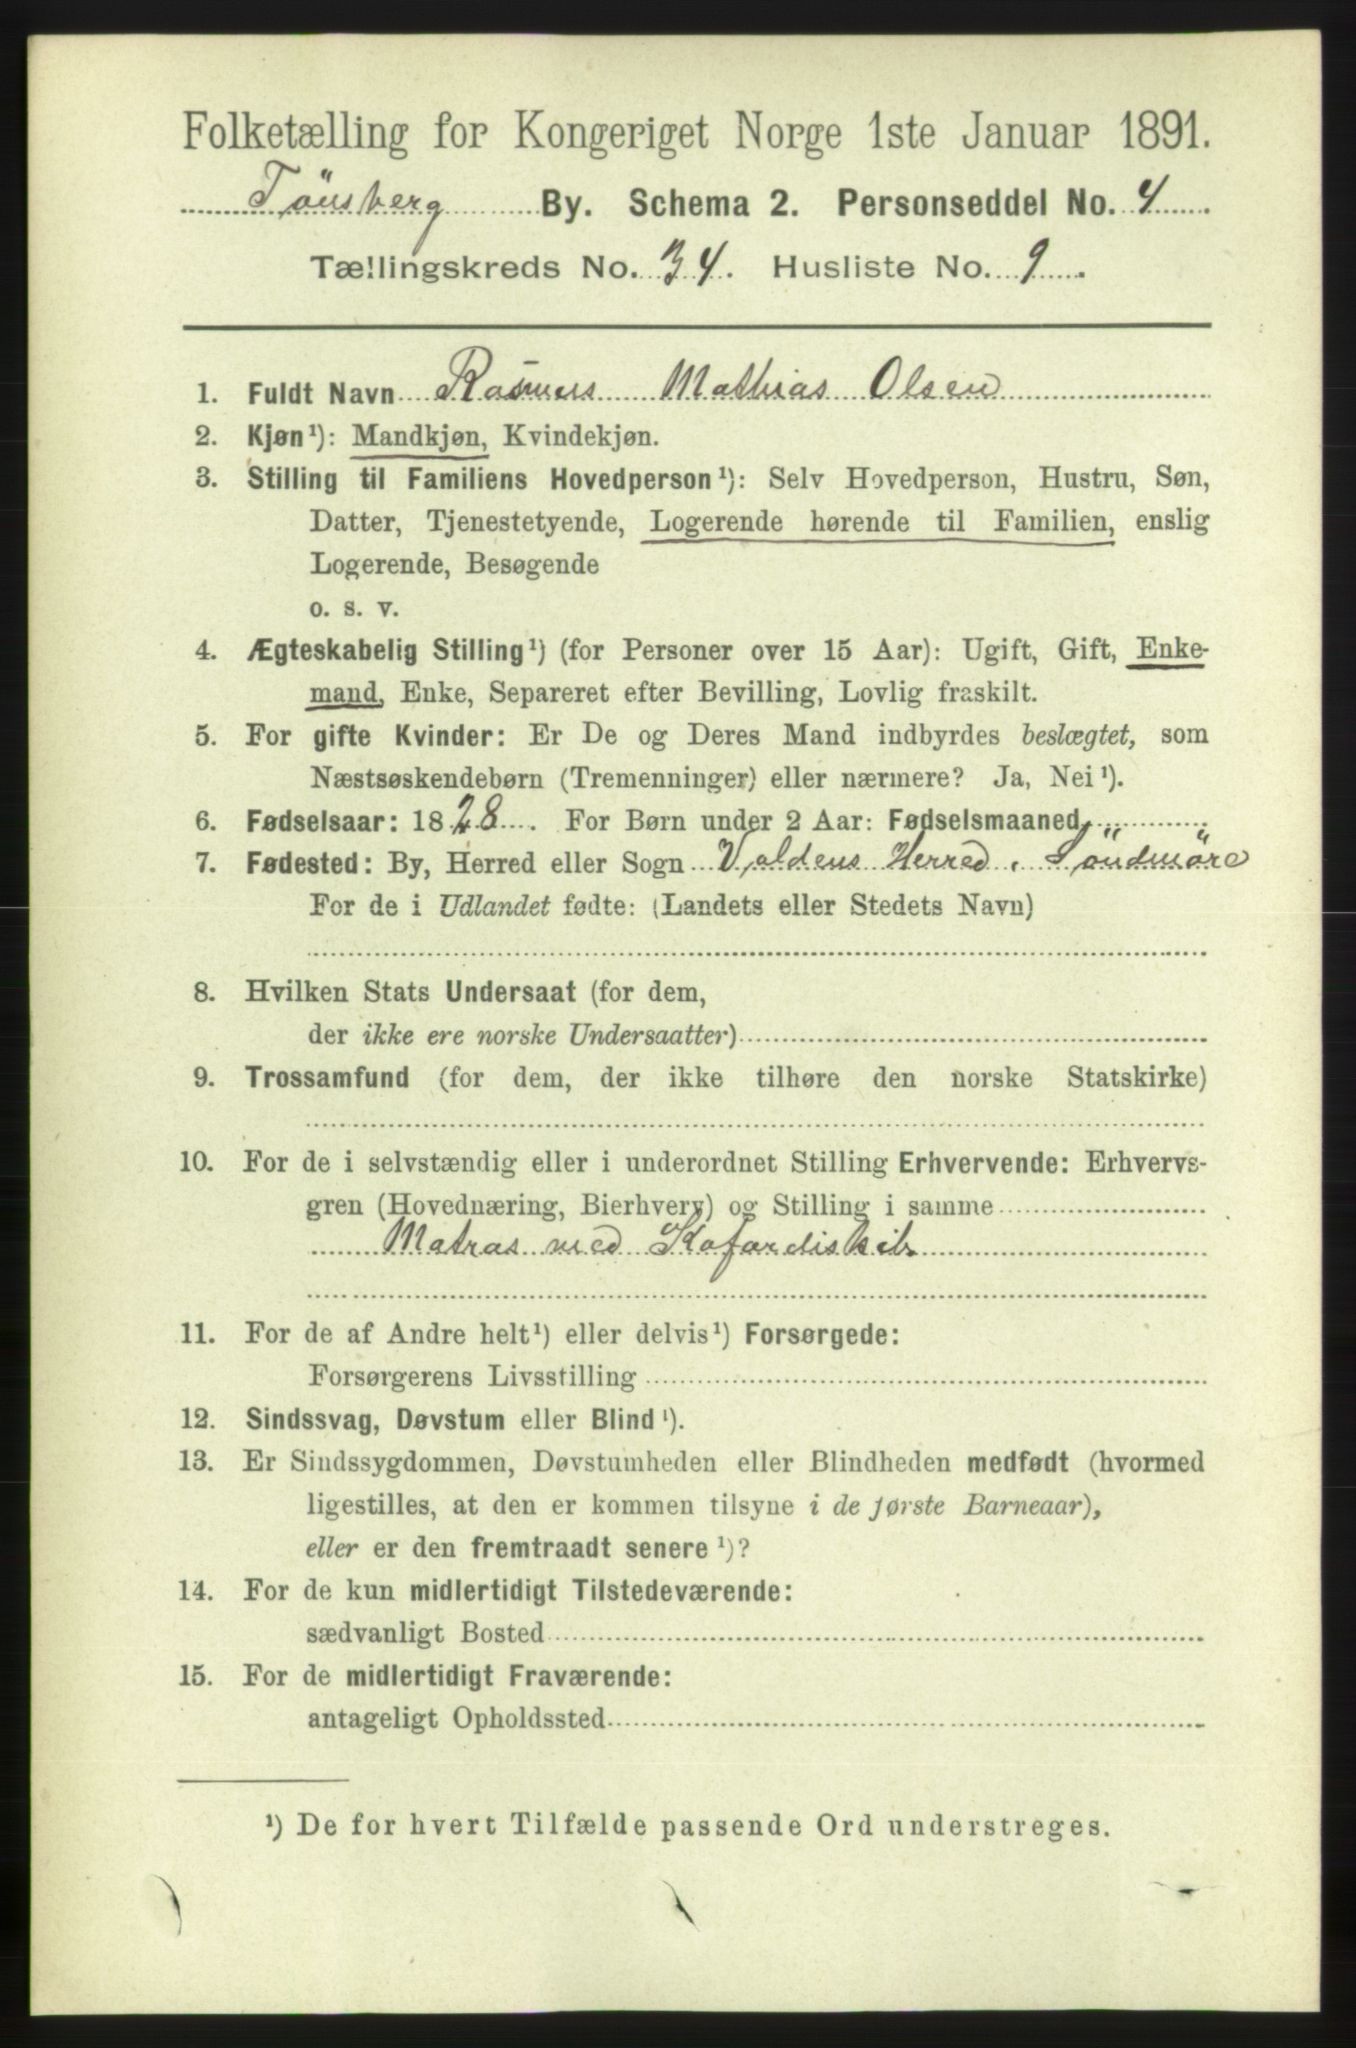 Folketælling for Kongeriget Norge 1ste Januar 1891.
Tönsberg By. Schema 2. Personseddel No. 4
Tællingskreds No. 34. Husliste No. 9.
1. Fuldt Navn Rasmus Mathias Olsen
2. Kjøn¹): Mandkjøn, Kvindekjøn.
3. Stilling til Familiens Hovedperson¹): Selv Hovedperson, Hustru, Søn,
Datter, Tjenestetyende, Logerende hørende til Familien, enslig
Logerende, Besøgende
o. s. v.
4. Ægteskabelig Stilling¹) (for Personer over 15 Aar): Ugift, Gift, Enke-
mand, Enke, Separeret efter Bevilling, Lovlig fraskilt.
5. For gifte Kvinder: Er De og Deres Mand indbyrdes beslægtet, som
Næstsøskendebørn (Tremenninger) eller nærmere? Ja, Nei¹).
6. Fødselsaar: 1828. For Børn under 2 Aar: Fødselsmaaned
7. Fødested: By, Herred eller Sogn Voldens Herred. Söndmöre
For de i Udlandet fødte: (Landets eller Stedets Navn)
8. Hvilken Stats Undersaat (for dem,
der ikke ere norske Undersaatter)
9. Trossamfund (for dem, der ikke tilhøre den norske Statskirke)
10. For de i selvstændig eller i underordnet Stilling Erhvervende: Erhvervs-
gren (Hovednæring, Bierhverv) og Stilling i samme
Matros med Kofardiskib
11. For de af Andre helt¹) eller delvis¹) Forsørgede:
Forsørgerens Livsstilling
12. Sindssvag, Døvstum eller Blind¹).
13. Er Sindssygdommen, Døvstumheden eller Blindheden medfødt (hvormed
ligestilles, at den er kommen tilsyne i de første Barneaar),
eller er den fremtraadt senere¹)?
14. For de kun midlertidigt Tilstedeværende:
sædvanligt Bosted
15. For de midlertidigt Fraværende:
antageligt Opholdssted
¹) De for hvert Tilfælde passende Ord understreges.